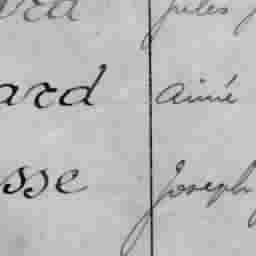 ard Jules
ard Aimé
sse Joseph